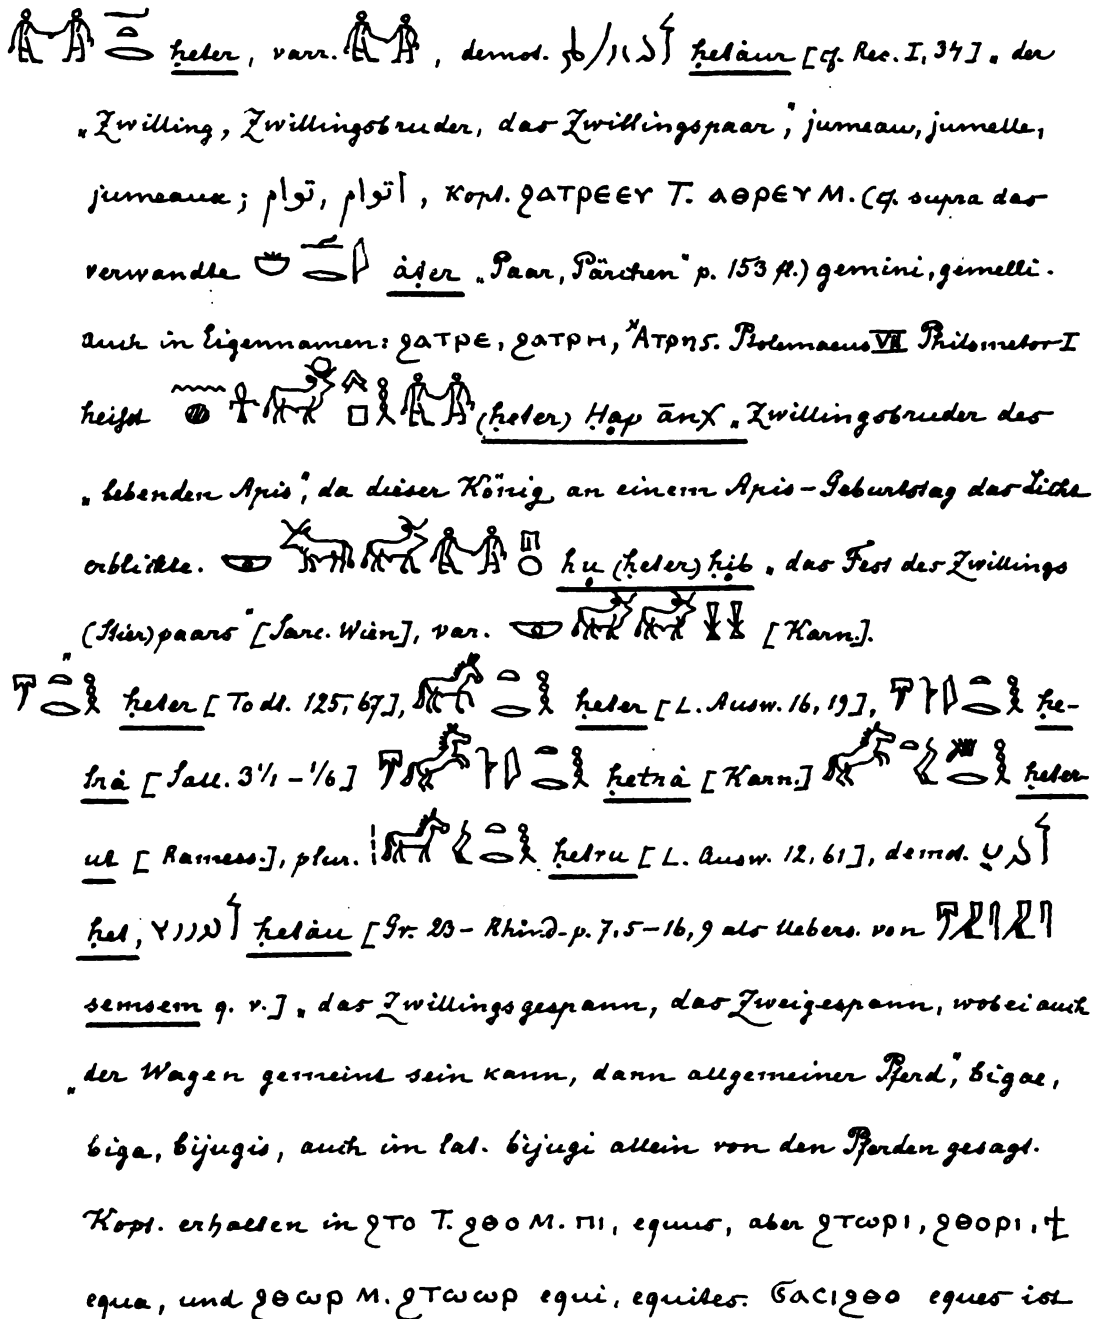 ḥeter, varr. , demot. ḥetàur [cf. Rec. I, 34] „der
„Zwilling, Zwillingsbruder, das Zwillingspaar”, jumeau, jumelle,
jumeaux; توام, اتوام, Kopt. ϩⲁⲧⲣⲉⲉⲩ T. ⲁⲑⲣⲉⲩ M. (cf. supra das
verwandte àṭer „Paar, Pärchen” p. 153 fl.) gemini, gemelli.
auch in Eigennamen: ϩⲁⲧⲣⲉ, ϩⲁⲧⲣⲏ, Ἁτρης. Ptolemaeus VII Philometor I
heifst (ḥeter) Ḥap ānχ „Zwillingsbruder des
„lebenden Apis”, da dieser König an einem Apis-Geburtstag das Licht
erblickte. ḥu (ḥeter) ḥib „das Fest des Zwillings
(Stier)paars” [Sarc. Wien], var. [Karn.].
ḥeter [Todt. 125, 67], ḥeter [L. Ausw. 16, 19], ḥe-
trà [Sall. 3 1/1 – 1/6] ḥetrà [Karn.] ḥeter-
ut [Ramess.], plur. ḥetru [L. Ausw. 12, 61], demot.
ḥet, ḥetàu [Gr. 23 – Rhind-p. 7, 5 – 16, 9 als Uebers. von
semsem q. v.] „das Zwillingsgespann, das Zweigespann, wobei auch
„der Wagen gemeint sein kann, dann allgemeiner Pferd”, bigae,
biga, bijugis, auch im lat. bijugi allein von den Pferden gesagt.
Kopt. erhalten in ϩⲧⲟ T. ϩⲑⲟ M. ⲡⲓ, equus, aber ϩⲧⲱⲣⲓ, ϩⲑⲟⲣⲓ, ϯ
equa, und ϩⲑⲱⲣ M. ϩⲧⲱⲱⲣ equi, equites. ϭⲁⲥⲓϩⲑⲟ eques ist